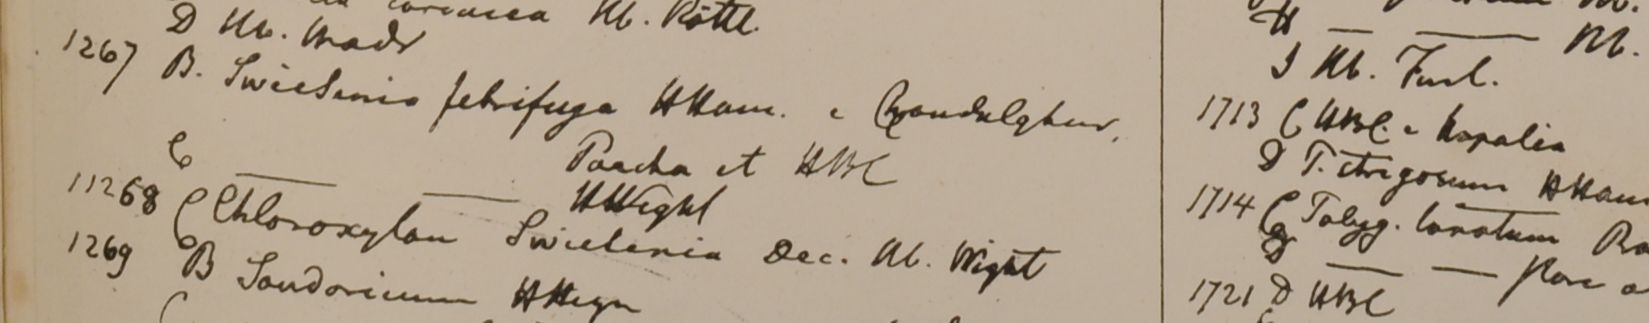 coriacea Hb. Röttl.
D Hb. Madr
1267 B. Swietenia febrifuga HHam. e Gondulghur,
Pancha et HBC
C — — HWight
11268 C Chloroxylon Swietenia Dec. Hb. Wight
1269 B Sandoricum HHeyn
C
H — — Hb.
I Hb. Finl.
1713 C HBC e Napalia
D P. strigosum HHam
1714 C Polyg. lanatum Ro
— — flore a
1721 D HBC